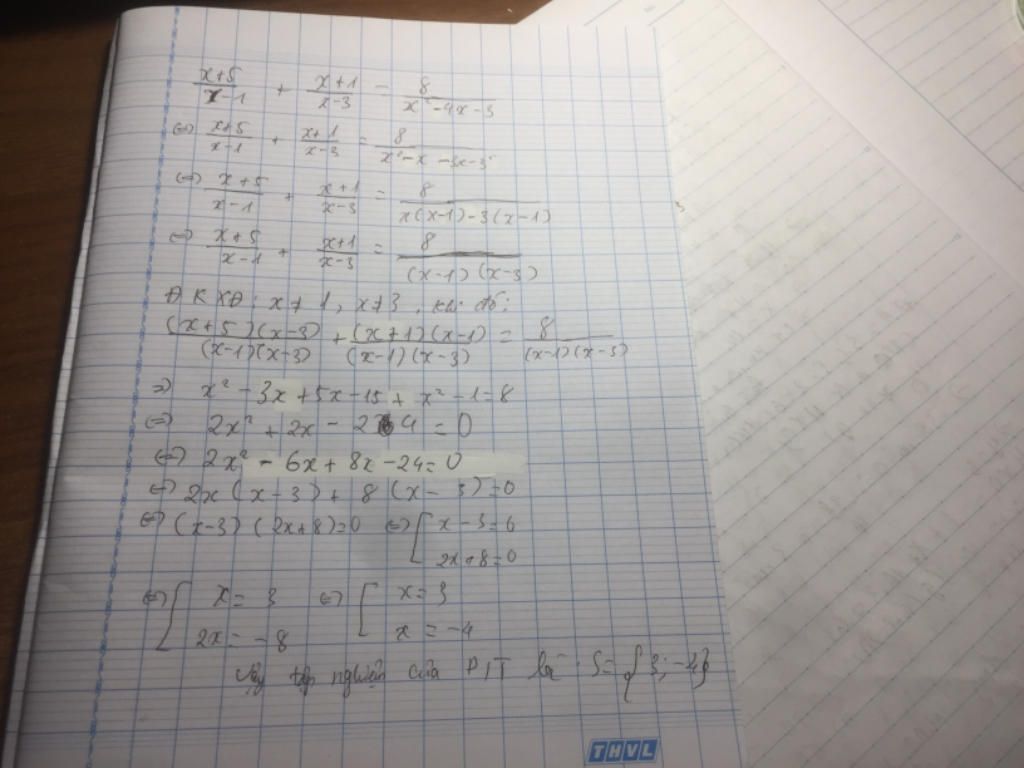 x+5/x-1 + x+1/x-3 = 8/x²-4x-3
⇔ x+5/x-1 + x+1/x-3 = 8/x²-x-3x-3
⇔ x+5/x-1 + x+1/x-3 = 8/x(x-1)-3(x-1)
⇔ x+5/x-1 + x+1/x-3 = 8/(x-1)(x-3)
ĐKXĐ: x≠1, x≠3, khi đó:
(x+5)(x-3)/(x-1)(x-3) + (x+1)(x-1)/(x-1)(x-3) = 8/(x-1)(x-3)
⇒ x²-3x+5x-15+x²-1=8
⇔ 2x²+2x-24=0
⇔ 2x²-6x+8x-24=0
⇔ 2x(x-3)+8(x-3)=0
⇔ (x-3)(2x+8)=0 ⇔ [ x-3=0
2x+8=0
⇔ [ x=3 ⇔ [ x=3
2x=-8 x=-4
Vậy tập nghiệm của PT là S={3;-4}
THVL